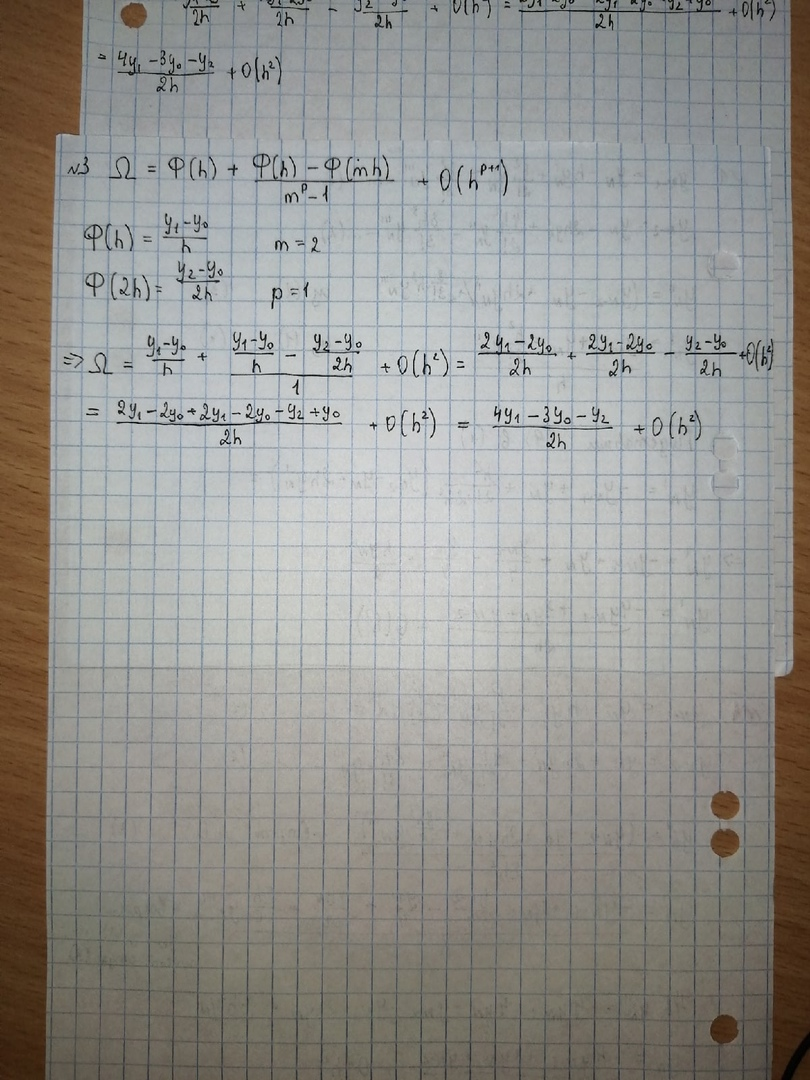 /2h + /2h - /2h + O(h²) = /2h + O(h²)
= (4y₁ - 3y₀ - y₂)/2h + O(h²)
№3 Ω = Φ(h) + (Φ(h) - Φ(mh))/(m^p - 1) + O(h^(p+1))
Φ(h) = (y₁ - y₀)/h m = 2
Φ(2h) = (y₂ - y₀)/2h p = 1
=> Ω = (y₁ - y₀)/h + ((y₁ - y₀)/h - (y₂ - y₀)/2h)/1 + O(h²) = (2y₁ - 2y₀)/2h + (2y₁ - 2y₀)/2h - (y₂ - y₀)/2h + O(h²)
= (2y₁ - 2y₀ + 2y₁ - 2y₀ - y₂ + y₀)/2h + O(h²) = (4y₁ - 3y₀ - y₂)/2h + O(h²)